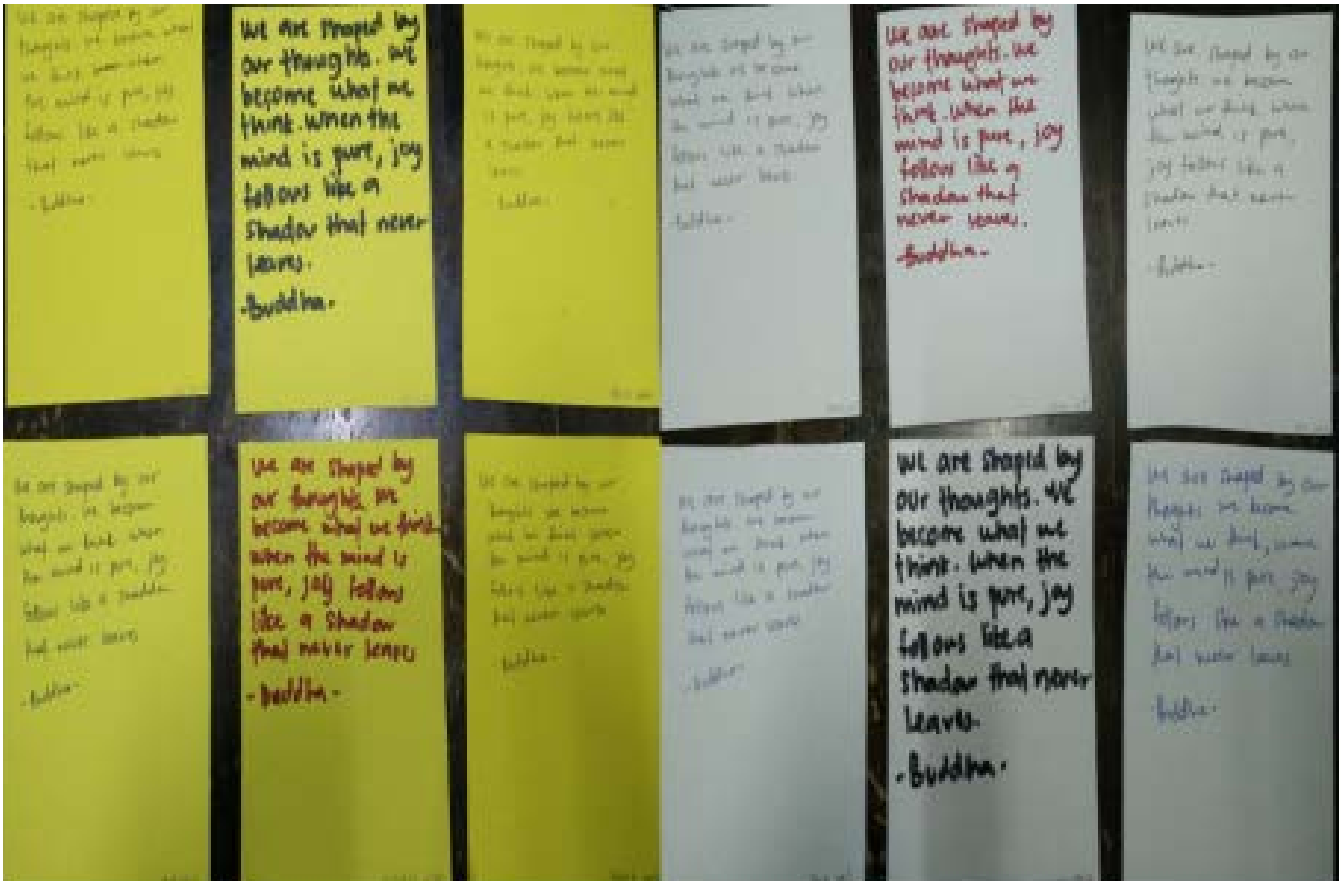 We are shaped by our
thoughts. We become what
we think. When
the mind is pure, joy
follow like a shadow
that never leaves
- Buddha -
We are shaped by
our thoughts. We
become what we
think. When the
mind is pure, joy
follows like a
shadow that never
leaves.
- Buddha -
We are shaped by our
we become
we think when the mind
is pure, joy
a shadow that never
- Buddha -
We are shaped by our
thoughts we become
what we think when
the mind is pure, joy
follows like a shadow
that never leaves
- Buddha -
We are shaped by
our thoughts. We
become what we
think. When the
mind is pure, joy
follows like a
shadow that
never leaves.
- Buddha -
We are shaped by our
thoughts we become
what we think when
the mind is pure,
joy follows like a
shadow that never
- Buddha -
We are shaped by our
thoughts. We become
what we think when
the mind is pure, joy
follows like a shadow
that never leaves
- Buddha -
We are shaped by
our thoughts we
become what we think
when the mind is
pure, joy follows
like a shadow
that never leaves
- Buddha -
We are shaped by our
thoughts we become
what we think when
the mind is pure, joy
follows like a shadow
that never
- Buddha -
We are shaped by our
thoughts we become
what we think when
the mind is pure, joy
follows like a shadow
that never
- Buddha -
We are shaped by
our thoughts. We
become what we
think. When the
mind is pure, joy
follows like a
shadow that never
leaves.
- Buddha -
We are shaped by our
thoughts we become
what we think, when
the mind is pure, joy
follows like a shadow
that never leaves
- Buddha -